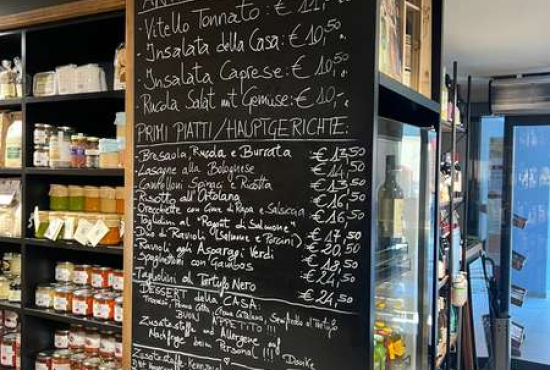 - Vitello Tonnato: € 11,50
- Insalata della Casa: € 10,50
- Insalata Caprese: € 10,50
- Rucola Salat mit Gemüse: € 10,-
PRIMI PIATTI/HAUPTGERICHTE:
- Bresaola, Rucola e Burrata € 13,50
- Lasagne alla Bolognese € 14,50
- Cannelloni Spinaci e Ricotta € 13,50
- Risotto all'Ortolana € 16,50
- Orecchiette con Cime di Rapa e Salsiccia € 16,50
- Tagliolini al "Ragout di Salmone" € 17,50
- Duo di Ravioli (Salmone e Porcini) € 20,50
- Ravioli agli Asparagi Verdi € 18,50
- Spaghettoni con Gambas € 24,50
- Tagliolini al Tartufo Nero € 24,50
DESSERT della CASA:
Tiramisù, Panna Cotta, Crema Catalana, Semifreddo al Tartufo
BUON APPETITO!!!
Zusatzstoffe und Allergene auf
Nachfrage beim Personal!!! Danke
Zusatzstoffe-Kennz